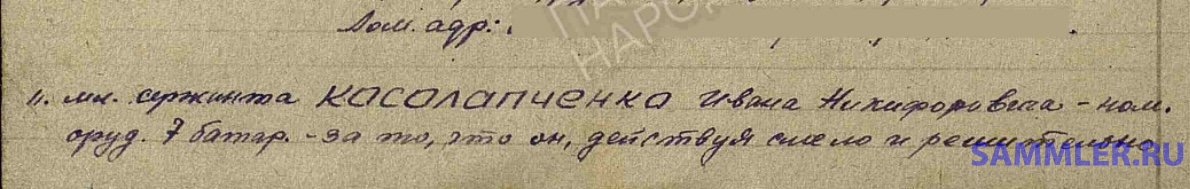 Дом. адр:
4. мл. сержанта КОСОЛАПЧЕНКО Ивана Никифоровича - ном.
оруд. 7 батар. - за то, что он, действуя смело и решительно
SAMMLER.RU